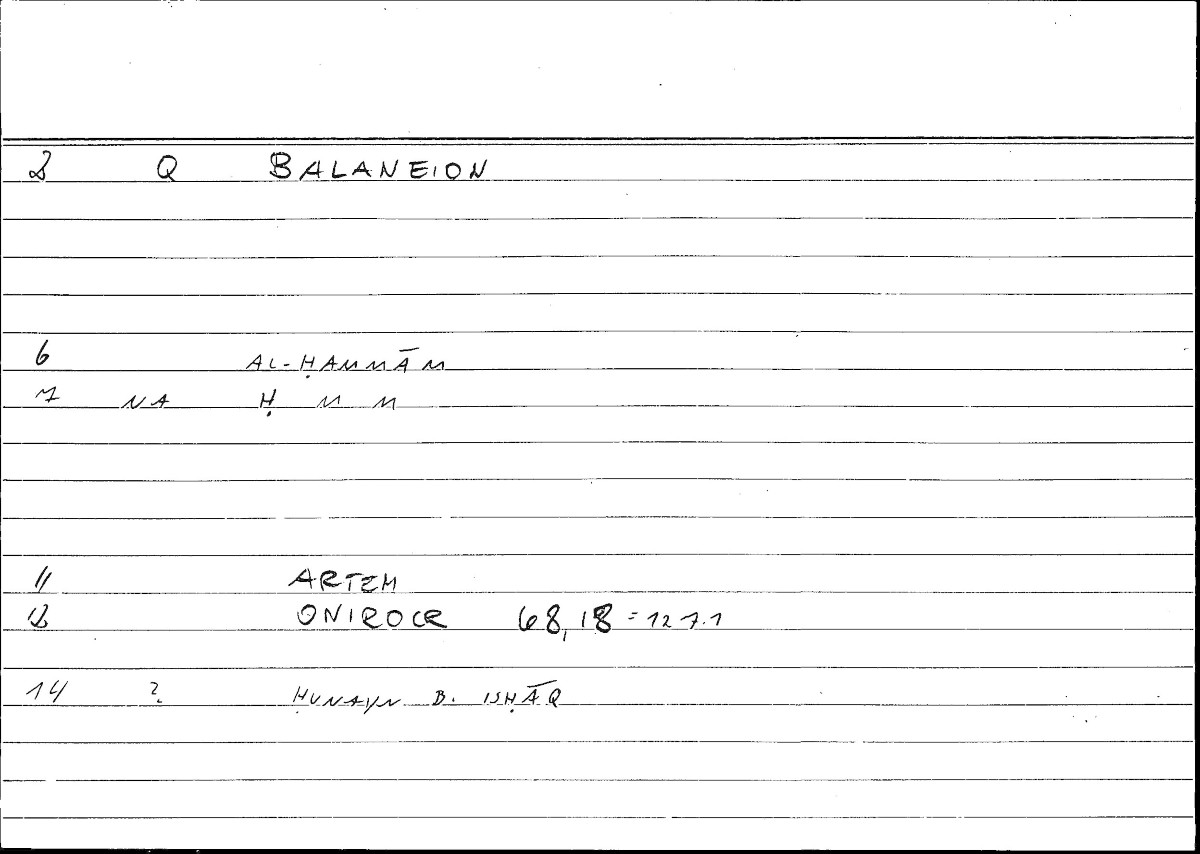 2 Q BALANEION
6 AL-ḤAMMĀM
7 NA Ḥ M M
11 ARTEM
12 ONIROCR 68,18 = 127.1
14 ? ḤUNAYN B. ISḤĀQ